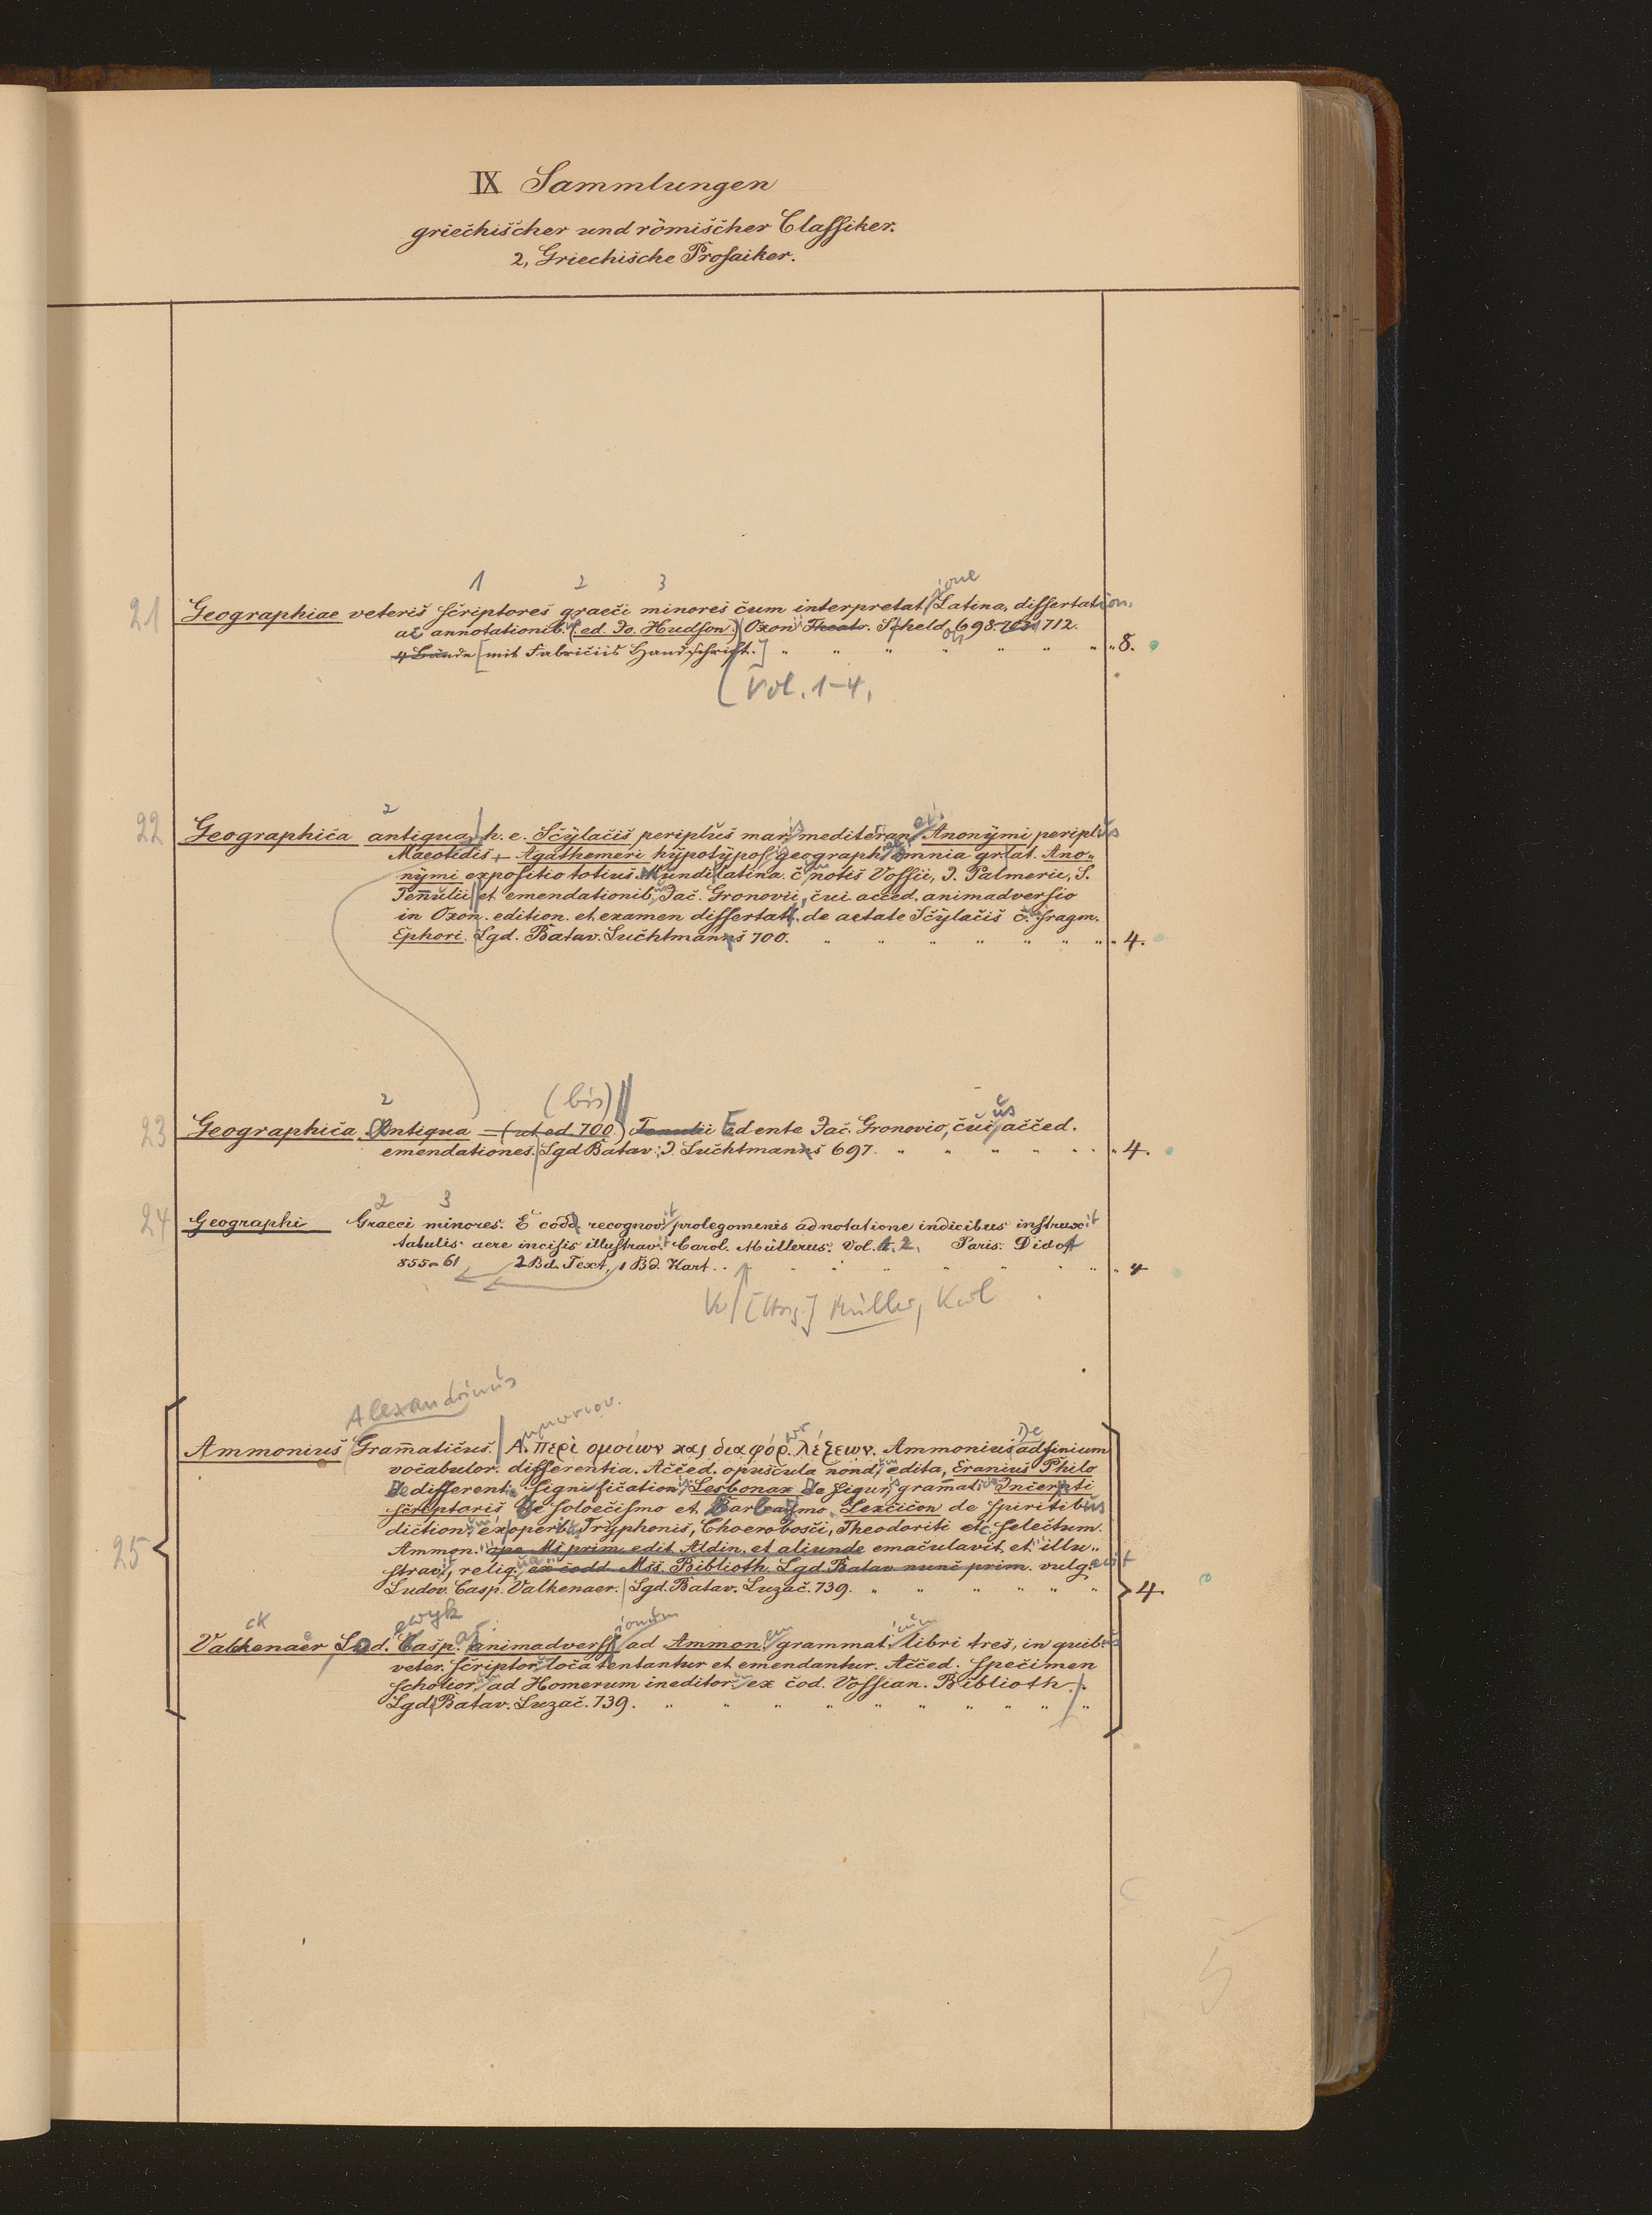 IX Sammlungen
griechischer und römischer Classiker.
2, Griechische Prosaiker.
1 2 3 ione
21 Geographiae veteris scriptores graeci minores cum interpretat Latina, dissertation.
ac annotationib. (ed. Jo. Hudson.) Oxon Theatr. Scheld. 698-703 712.
4 Bände [mit Fabriciis Handschrift.] " " " " " " " " 8.
Vol. 1-4.
2
22 Geographica antiqua, h. e. Scylacis periplus mar mediteran Anonymi periplus
Maeotidis, Agathemeri hypotypos geograph omnia gr lat. Ano„
nymi expositio totius Mundi latina. c notis Vossii, J. Palmerii, S.
Tennulii et emendationib Jac. Gronovii, cui acced. animadversio
in Oxon. edition. et examen dissertat. de aetate Scylacis c. fragm.
Ephori. Lgd. Batav. Luchtmanns 700. " " " " " " " " 4.
2 (bis) us
23 Geographica Antiqua (ut ed. 700) Tennulii Edente Jac. Gronovio, cui acced.
emendationes. Lgd Batav. J. Luchtmanns 697. " " " " " " 4.
2 3
24 Geographi Graeci minores. E codd. recognovit prolegomenis adnotatione indicibus instruxit
tabulis aere incisis illustravit Carol. Müllerus. Vol. 1. 2. Paris. Didot
855-61 2 Bd. Text, 1 Bd. Kart. " " " " " " 4
[Hrsg.] Müller, Karl
Alexandrinus
De
Ammonius Gramaticus. Α. περὶ ομοίων και διαφόρ. λέξεων. Ammonius adfinium
vocabulor. differentia. Acced. opuscula nond. edita, Eranius Philo
De differentia signification. Lesbonax De figur. gramat. Incerti
scriptoris De soloecismo et Barbarismo. Lexcicon de spiritibus
diction. ex operib. Tryphonis, Choerobosci, Theodoriti etc. selectum.
25 Ammon. ope Ms prim. edit Aldin. et aliunde emaculavit et illu„
stravit, reliq. ex codd. Mss Biblioth. Lgd. Batav nunc prim. vulg.
Ludov. Casp. Valkenaer. Lgd. Batav. Luzac. 739. " " " " " " 4
ck ewyk
Valckenaer Lod. Casp. animadverss ad Ammon. grammat. libri tres, in quibus
veter. scriptor loca tentantur et emendantur. Acced. specimen
scholior ad Homerum ineditor ex cod. Vossian. Biblioth.
Lgd Batav. Luzac. 739. " " " " " " " " "
5